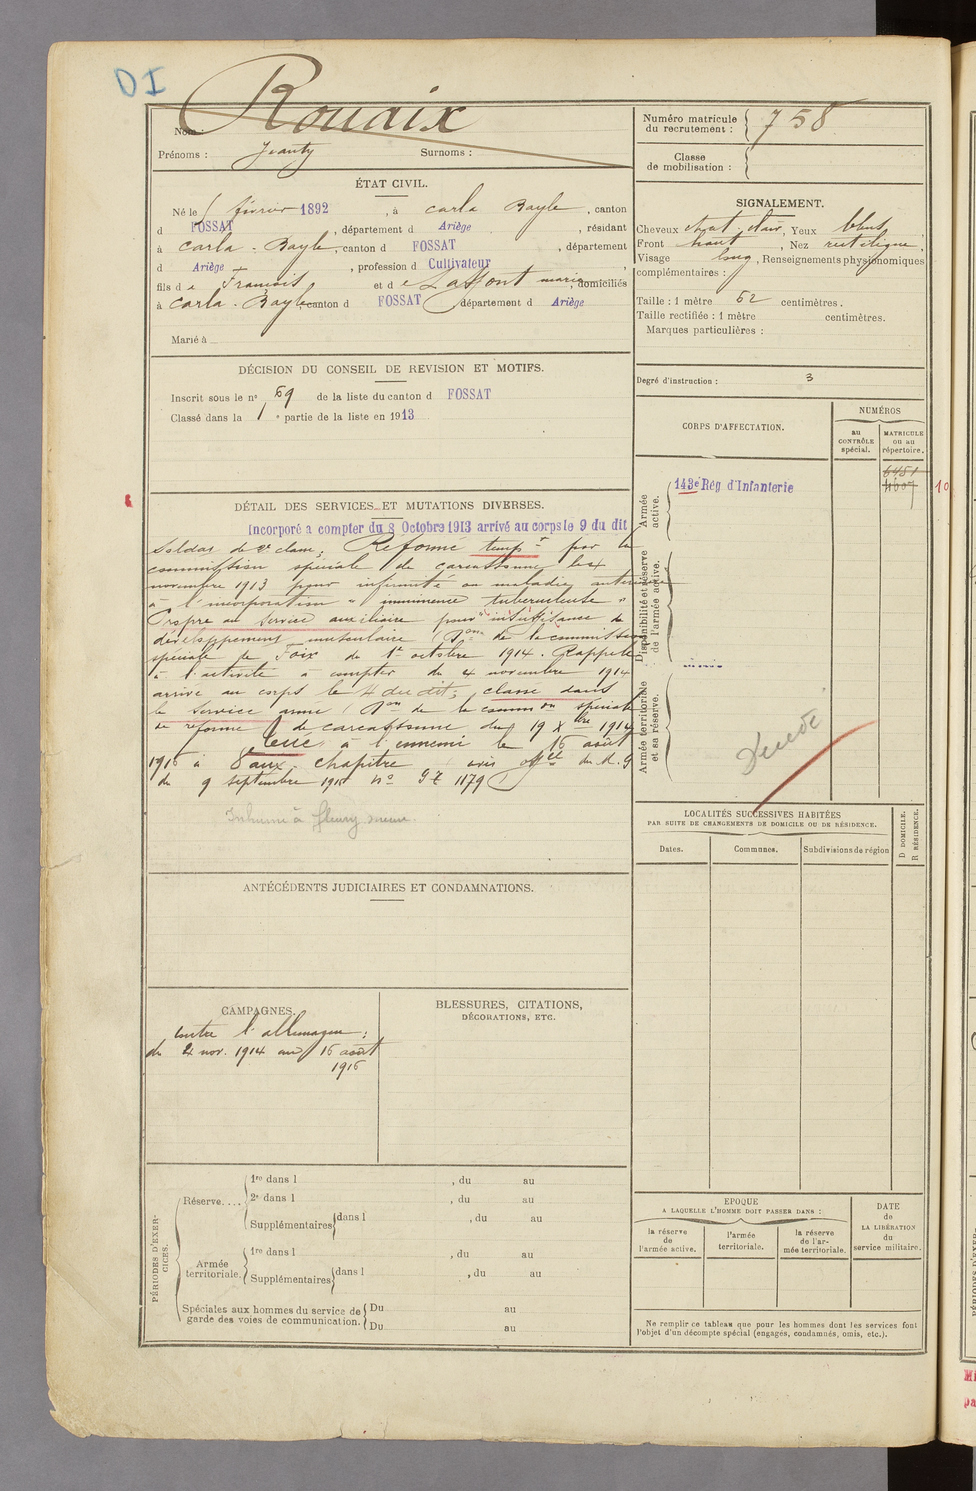 DI
Nom : Rouaix
Prénoms : Jeanty Surnoms :
Numéro matricule
du recrutement : 758
Classe
de mobilisation :
ÉTAT CIVIL.
Né le février 1892, à Carla Bayle, canton
d FOSSAT, département d Ariège, résidant
à Carla-Bayle, canton d FOSSAT, département
d Ariège, profession d Cultivateur
fils de François et de Laffont maria, domiciliés
à Carla-Bayle, canton d FOSSAT département d Ariège
Marié à
SIGNALEMENT.
Cheveux chat. clair, Yeux bleus,
Front haut, Nez rectiligne,
Visage long, Renseignements physionomiques
complémentaires :
Taille : 1 mètre 62 centimètres.
Taille rectifiée : 1 mètre centimètres.
Marques particulières :
DÉCISION DU CONSEIL DE REVISION ET MOTIFS.
Inscrit sous le n° 69 de la liste du canton d FOSSAT
Classé dans la 1e partie de la liste en 1913
Degré d'instruction : 3
CORPS D'AFFECTATION.
NUMÉROS
au
CONTRÔLE
spécial.
MATRICULE
ou au
répertoire.
6451
4607
10
Armée
active.
143e Rég d'Infanterie
Disponibilité et réserve
de l'armée active.
Armée territoriale
et sa réserve.
DÉTAIL DES SERVICES ET MUTATIONS DIVERSES.
Incorporé a compter du 8 Octobre 1913 arrivé au corps le 9 du dit
Soldat de 2e classe; Réformé temp. par la
commission spéciale de Carcassonne le 4
novembre 1913 pour infirmité ou maladie antérieure
à l'incorporation "imminence tuberculeuse"
Propre au service auxiliaire pour insuffisance de
développement musculaire Don de la commission
spéciale de Foix du 1er octobre 1914. Rappelé
à l'activité à compter du 4 novembre 1914
arrivé au corps le 4 du dit; classé dans
le service armé Don de la common spéciale
de réforme de Carcassonne du 19 Xbre 1914
tué à l'ennemi le 16 août
1916 à Vaux-Chapitre avis offel du M. G
du 9 septembre 1916 n° 1179
Inhumé à fleury
Décédé
LOCALITÉS SUCCESSIVES HABITÉES
PAR SUITE DE CHANGEMENTS DE DOMICILE OU DE RÉSIDENCE.
Dates.
Communes.
Subdivisions de région
D DOMICILE.
R RÉSIDENCE.
ANTÉCÉDENTS JUDICIAIRES ET CONDAMNATIONS.
CAMPAGNES.
Contre l'allemagne:
du 4 nov. 1914 au 16 août
1916
BLESSURES, CITATIONS,
DÉCORATIONS, ETC.
PÉRIODES D'EXER-
CICES.
Réserve....
1re dans l , du au
2e dans l , du au
Supplémentaires dans l , du au
Armée
territoriale.
1re dans l , du au
Supplémentaires dans l , du au
Spéciales aux hommes du service de
garde des voies de communication.
Du au
Du au
EPOQUE
A LAQUELLE L'HOMME DOIT PASSER DANS :
la réserve
de
l'armée active.
l'armée
territoriale.
la réserve
de l'ar-
mée territoriale.
DATE
de
LA LIBÉRATION
du
service militaire.
Ne remplir ce tableau que pour les hommes dont les services font
l'objet d'un décompte spécial (engagés, condamnés, omis, etc.).